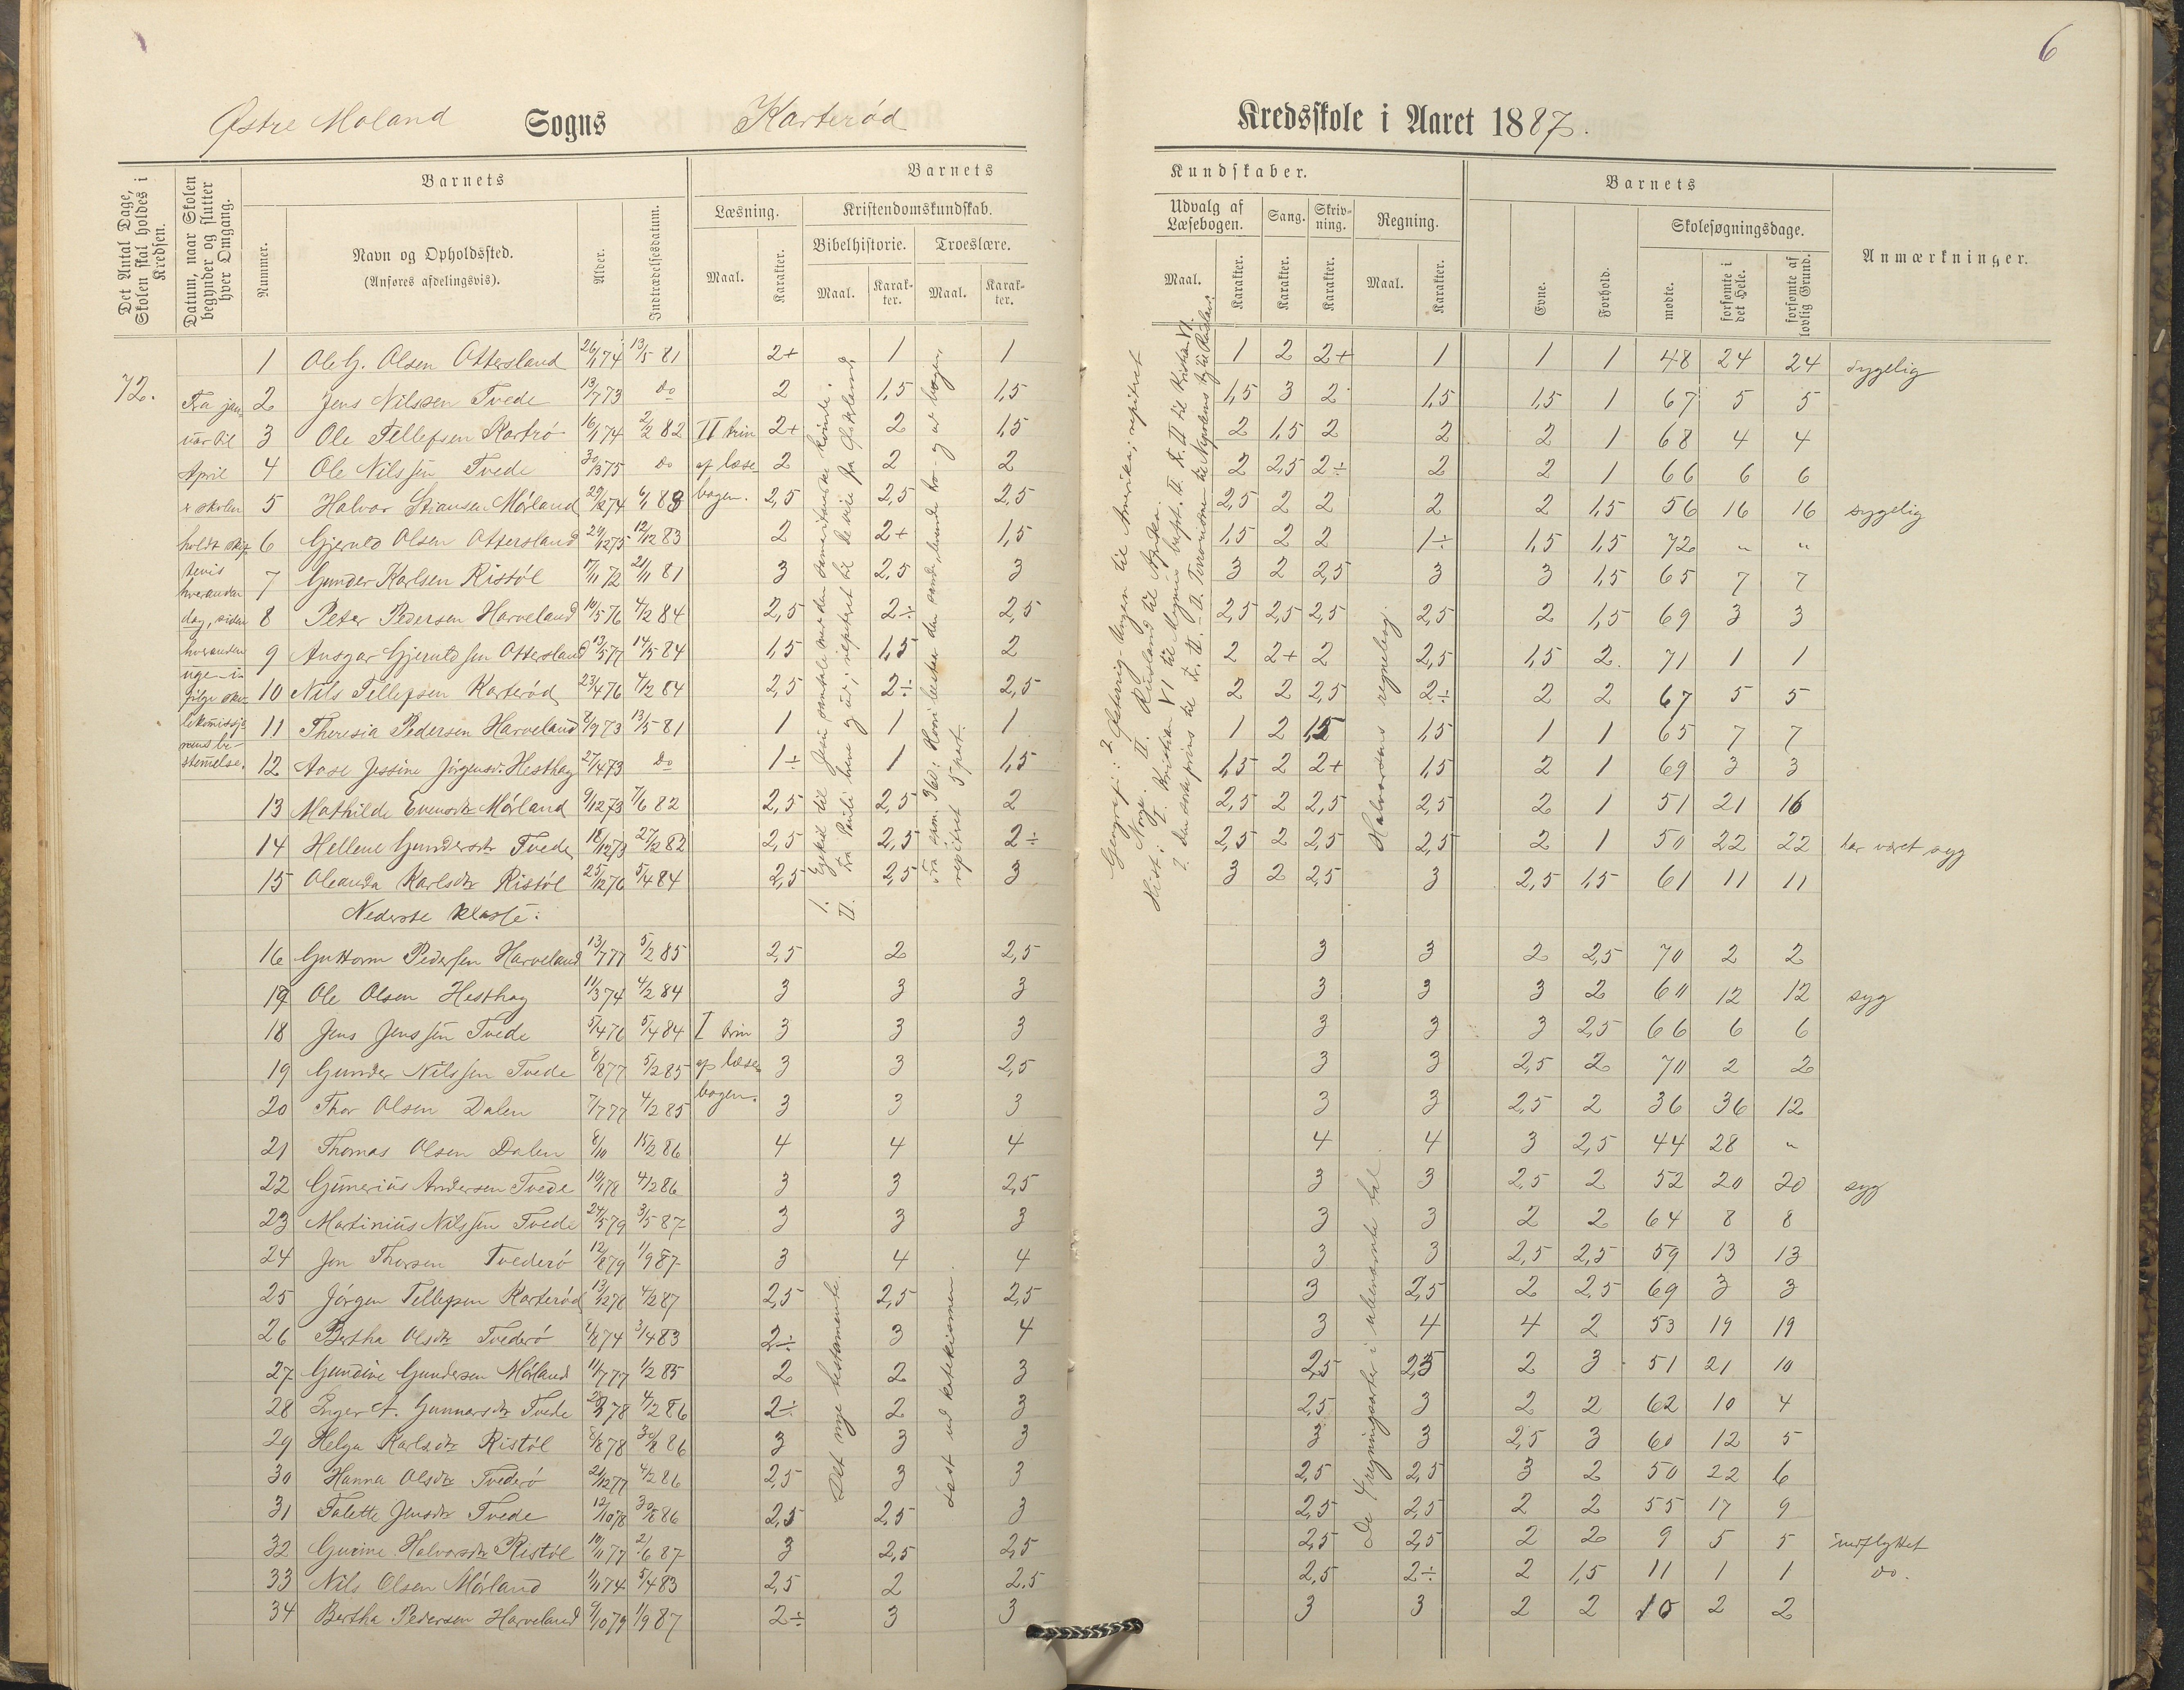 6
Østre Moland Sogns Karterød Kredsskole i Aaret 1887.
Det Antal Dage, Skolen skal holdes i Kredsen.
Datum, naar Skolen begynder og slutter hver Omgang.
Barnets
Nummer.
Navn og Opholdssted.
(Anføres afdelingsvis).
Alder.
Indtrædelsesdatum.
Barnets Kundskaber.
Læsning.
Maal. Karakter.
Kristendomskundskab.
Bibelhistorie. Troeslære.
Maal. Karakter. Maal. Karakter.
Udvalg af Læsebogen. Sang. Skrivning. Regning.
Maal. Karakter. Karakter. Karakter. Maal. Karakter.
Barnets
Evne. Forhold.
Skolesøgningsdage.
mødte. forsømte i det Hele. forsømte af lovlig Grund.
Anmærkninger.
72.
Fra januar til
April
er skolen
holdt skiftevis
hverandan
dag, siden
hveranden
uge i
følge skolekomissjonens
bestemelse.
II trin
af læsebogen.
1 Ole G. Olsen Ottersland 26/1 74 13/5 81 2+ 1 1 1 2 2+ 1 1 1 48 24 24 sygelig
2 Jens Nilssen Tvede 13/7 73 do 2 1,5 1,5 1,5 3 2 1,5 1,5 1 67 5 5
3 Ole Tellefsen Kartrø 16/1 74 2/2 82 2+ 2 1,5 2 1,5 2 2 2 1 68 4 4
4 Ole Nilssen Tvede 30/3 75 do 2 2 2 2 2,5 2÷ 2 2 1 66 6 6
5 Halvor Stiansen Mørland 29/12 74 6/1 83 2,5 2,5 2,5 2,5 2 2 2 2 1,5 56 16 16 sygelig
6 Gjeruld Olsen Ottersland 29/12 75 12/12 83 2 2+ 1,5 1,5 2 2 1÷ 1,5 1,5 72 " "
7 Gunder Karlsen Ristøl 17/11 72 21/11 81 3 2,5 3 3 2 2,5 3 3 1,5 65 7 7
8 Peter Pedersen Harveland 10/5 76 4/2 84 2,5 2÷ 2,5 2,5 2,5 2,5 2,5 2 1,5 69 3 3
9 Ansgar Gjeruldsen Ottersland 12/5 77 14/5 84 1,5 1,5 2 2 2+ 2 2,5 1,5 2 71 1 1
10 Nils Tellefsen Karterød 23/4 76 4/2 84 2,5 2÷ 2,5 2 2 2,5 2÷ 2 2 67 5 5
11 Theresia Pedersen Harveland 8/9 73 13/5 81 1 1 1 1 2 1,5 1,5 1 1 65 7 7
12 Aase Jessine Jørgensd. Hesthag 27/4 73 do 1÷ 1 1,5 1,5 2 2+ 1,5 2 1 69 3 3
13 Mathilde Evensdtr Mørland 9/12 73 7/6 82 2,5 2,5 2 2,5 2 2,5 2,5 2 1 51 21 16
14 Hellene Gundersdtr Tvede 18/12 73 27/2 82 2,5 2,5 2÷ 2,5 2 2,5 2,5 2 1 50 22 22 har været syg
15 Oleanda Karlsdtr Ristøl 25/12 76 5/4 84 2,5 2,5 3 3 2 2,5 3 2,5 1,5 61 11 11
Halvorsens regnebog.
Nederste klasse:
I trin
af læsebogen.
16 Guttorm Pedersen Harveland 13/7 77 5/2 85 2,5 2 2,5 3 3 2 2,5 70 2 2
17 Ole Olsen Hesthag 11/3 74 4/2 84 3 3 3 3 3 3 2 60 12 12 syg
18 Jens Jenssen Tvede 5/4 76 5/4 84 3 3 3 3 3 3 2,5 66 6 6
19 Gunder Nilssen Tvede 8/8 77 5/2 85 3 3 2,5 3 3 2,5 2 70 2 2
20 Thor Olsen Dalen 7/7 77 4/2 85 3 3 3 3 3 2,5 2 36 36 12
21 Thomas Olsen Dalen 8/10 15/2 86 4 4 4 4 4 3 2,5 44 28 "
22 Gunerius Andersen Tvede 10/1 78 4/2 86 3 3 2,5 3 3 2,5 2 52 20 20 syg
23 Martinius Nilssen Tvede 24/5 79 3/5 87 3 3 3 3 3 2 2 64 8 8
24 Jon Thorsen Tvederø 12/8 79 1/9 87 3 4 4 3 3 2,5 2,5 59 13 13
25 Jørgen Tellefsen Karterød 13/12 78 4/2 87 2,5 2,5 2,5 3 2,5 2 2,5 69 3 3
26 Bertha Olsdtr Tvederø 8/8 74 3/4 83 2÷ 3 4 3 4 4 2 53 19 19
27 Gundine Gundersen Mørland 11/7 77 1/2 85 2 2 3 2,5 2,5 2 3 51 21 10
28 Inger A. Gunnarsdtr Tvede 78 4/2 86 2÷ 2 3 2,5 3 2 2 62 10 4
29 Helga Karlsdtr Ristøl 8/8 78 30/8 86 3 3 3 3 3 2,5 3 60 12 5
30 Hanna Olsdtr Tvederø 21/12 77 4/2 86 2,5 3 3 2,5 2,5 3 2 50 22 6
31 Talette Jensdtr Tvede 12/10 78 30/8 86 2,5 2,5 3 2,5 2,5 2 2 55 17 9
32 Gurine Halvorsdtr Ristøl 10/11 77 2/6 87 3 2,5 2,5 2,5 2,5 2 2 9 5 5 indflyttet
33 Nils Olsen Mørland 1/1 74 5/4 83 2,5 2 2,5 2,5 2÷ 2 1,5 11 1 1 do.
34 Bertha Pedersen Harveland 9/10 79 1/9 87 2÷ 3 3 3 3 2 2 10 2 2
Det nye testamente
Læst ud katekismen.
De 4 regningsarter i ubenævnte tal.